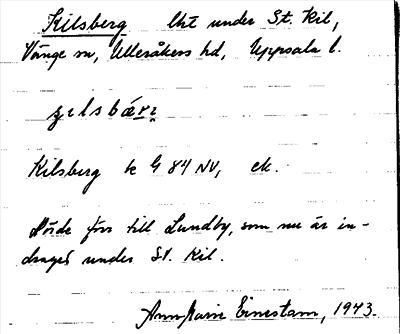 Kilsberg lht under St. Kil,
Vänge sn, Ulleråkers hd, Uppsala l.
Kilsberg k G 84 NV, ek.
Hörde förr till Lundby, som nu är in-
draget under St. Kil.
AnnMarie Einestam, 1943.